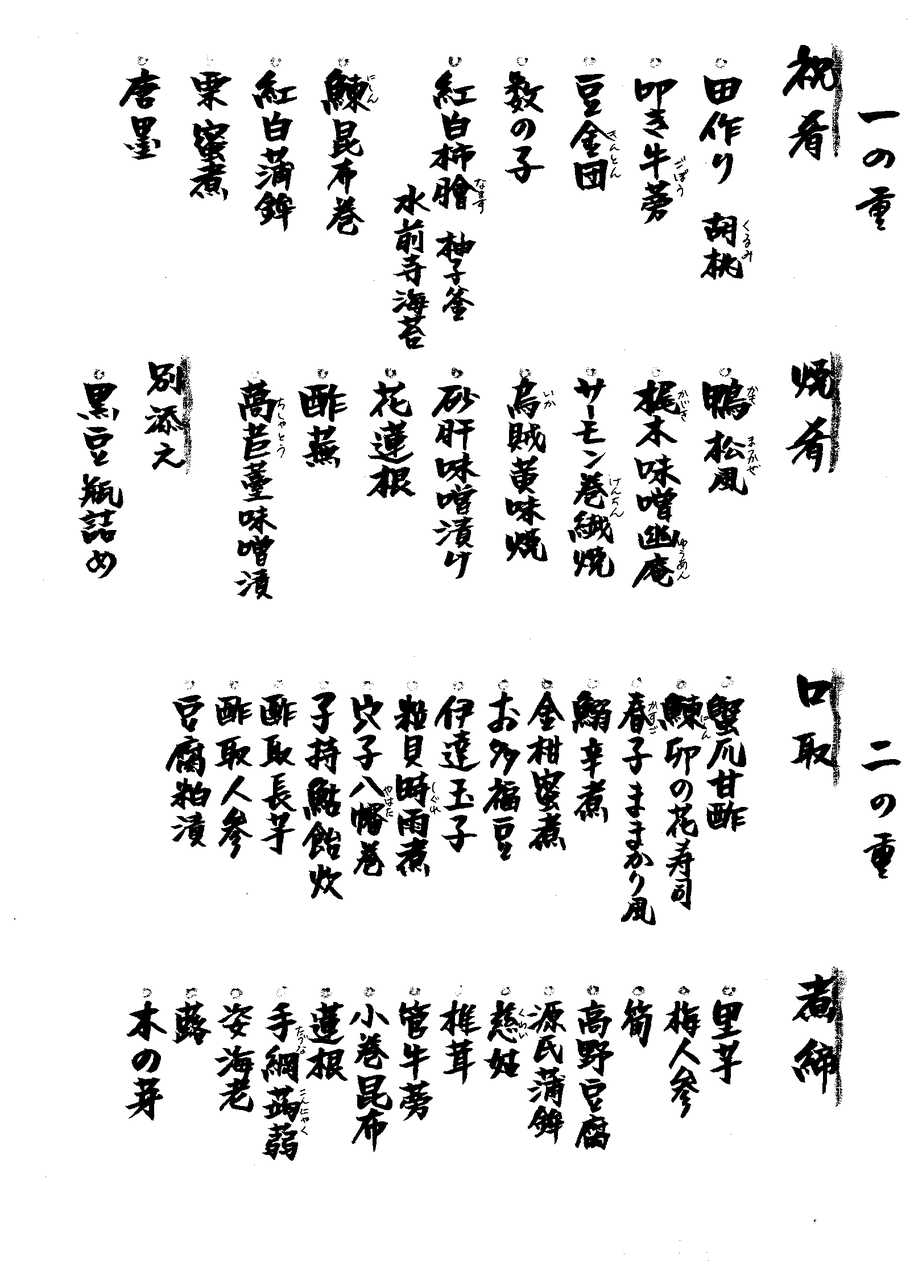 一の重
祝肴
田作り 胡桃
叩き牛蒡
豆金団
数の子
紅白柿膾 柚子釜
水前寺海苔
鰊昆布巻
紅白蒲鉾
栗蜜煮
唐墨
焼肴
鴨松風
梶木味噌幽庵
サーモン巻繊焼
烏賊黄味焼
砂肝味噌漬け
花蓮根
酢蕪
萵苣薹味噌漬
別添え
黒豆瓶詰め
二の重
口取
蟹爪甘酢
鰊卯の花寿司
春子ままかり風
鰯辛煮
金柑蜜煮
お多福豆
伊達玉子
粒貝時雨煮
穴子八幡巻
子持鮎飴炊
酢取長芋
酢取人参
豆腐粕漬
煮締
里芋
梅人参
筍
高野豆腐
源氏蒲鉾
慈姑
椎茸
管牛蒡
小巻昆布
蓮根
手綱蒟蒻
姿海老
蕗
木の芽